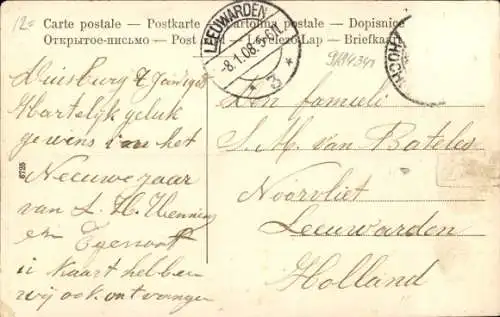 12=
Carte postale — Postkarte — Cartolina postale — Dopisnice
Открытое-письмо — Post Card — Levelezö-Lap — Briefkaart
LEEUWARDEN
-8.1.08.5-6N.
* 3 *
HOCH
Duisburg 7 Jan 1908
Hartelijk geluk
gewens van het
Neeuwe jaar
van L. H. Henning
en
u kaart hebben
wij ook ontvangen
6725
Den famieli
S. M. van Batelen
Noorvliet
Leeuwarden
Holland